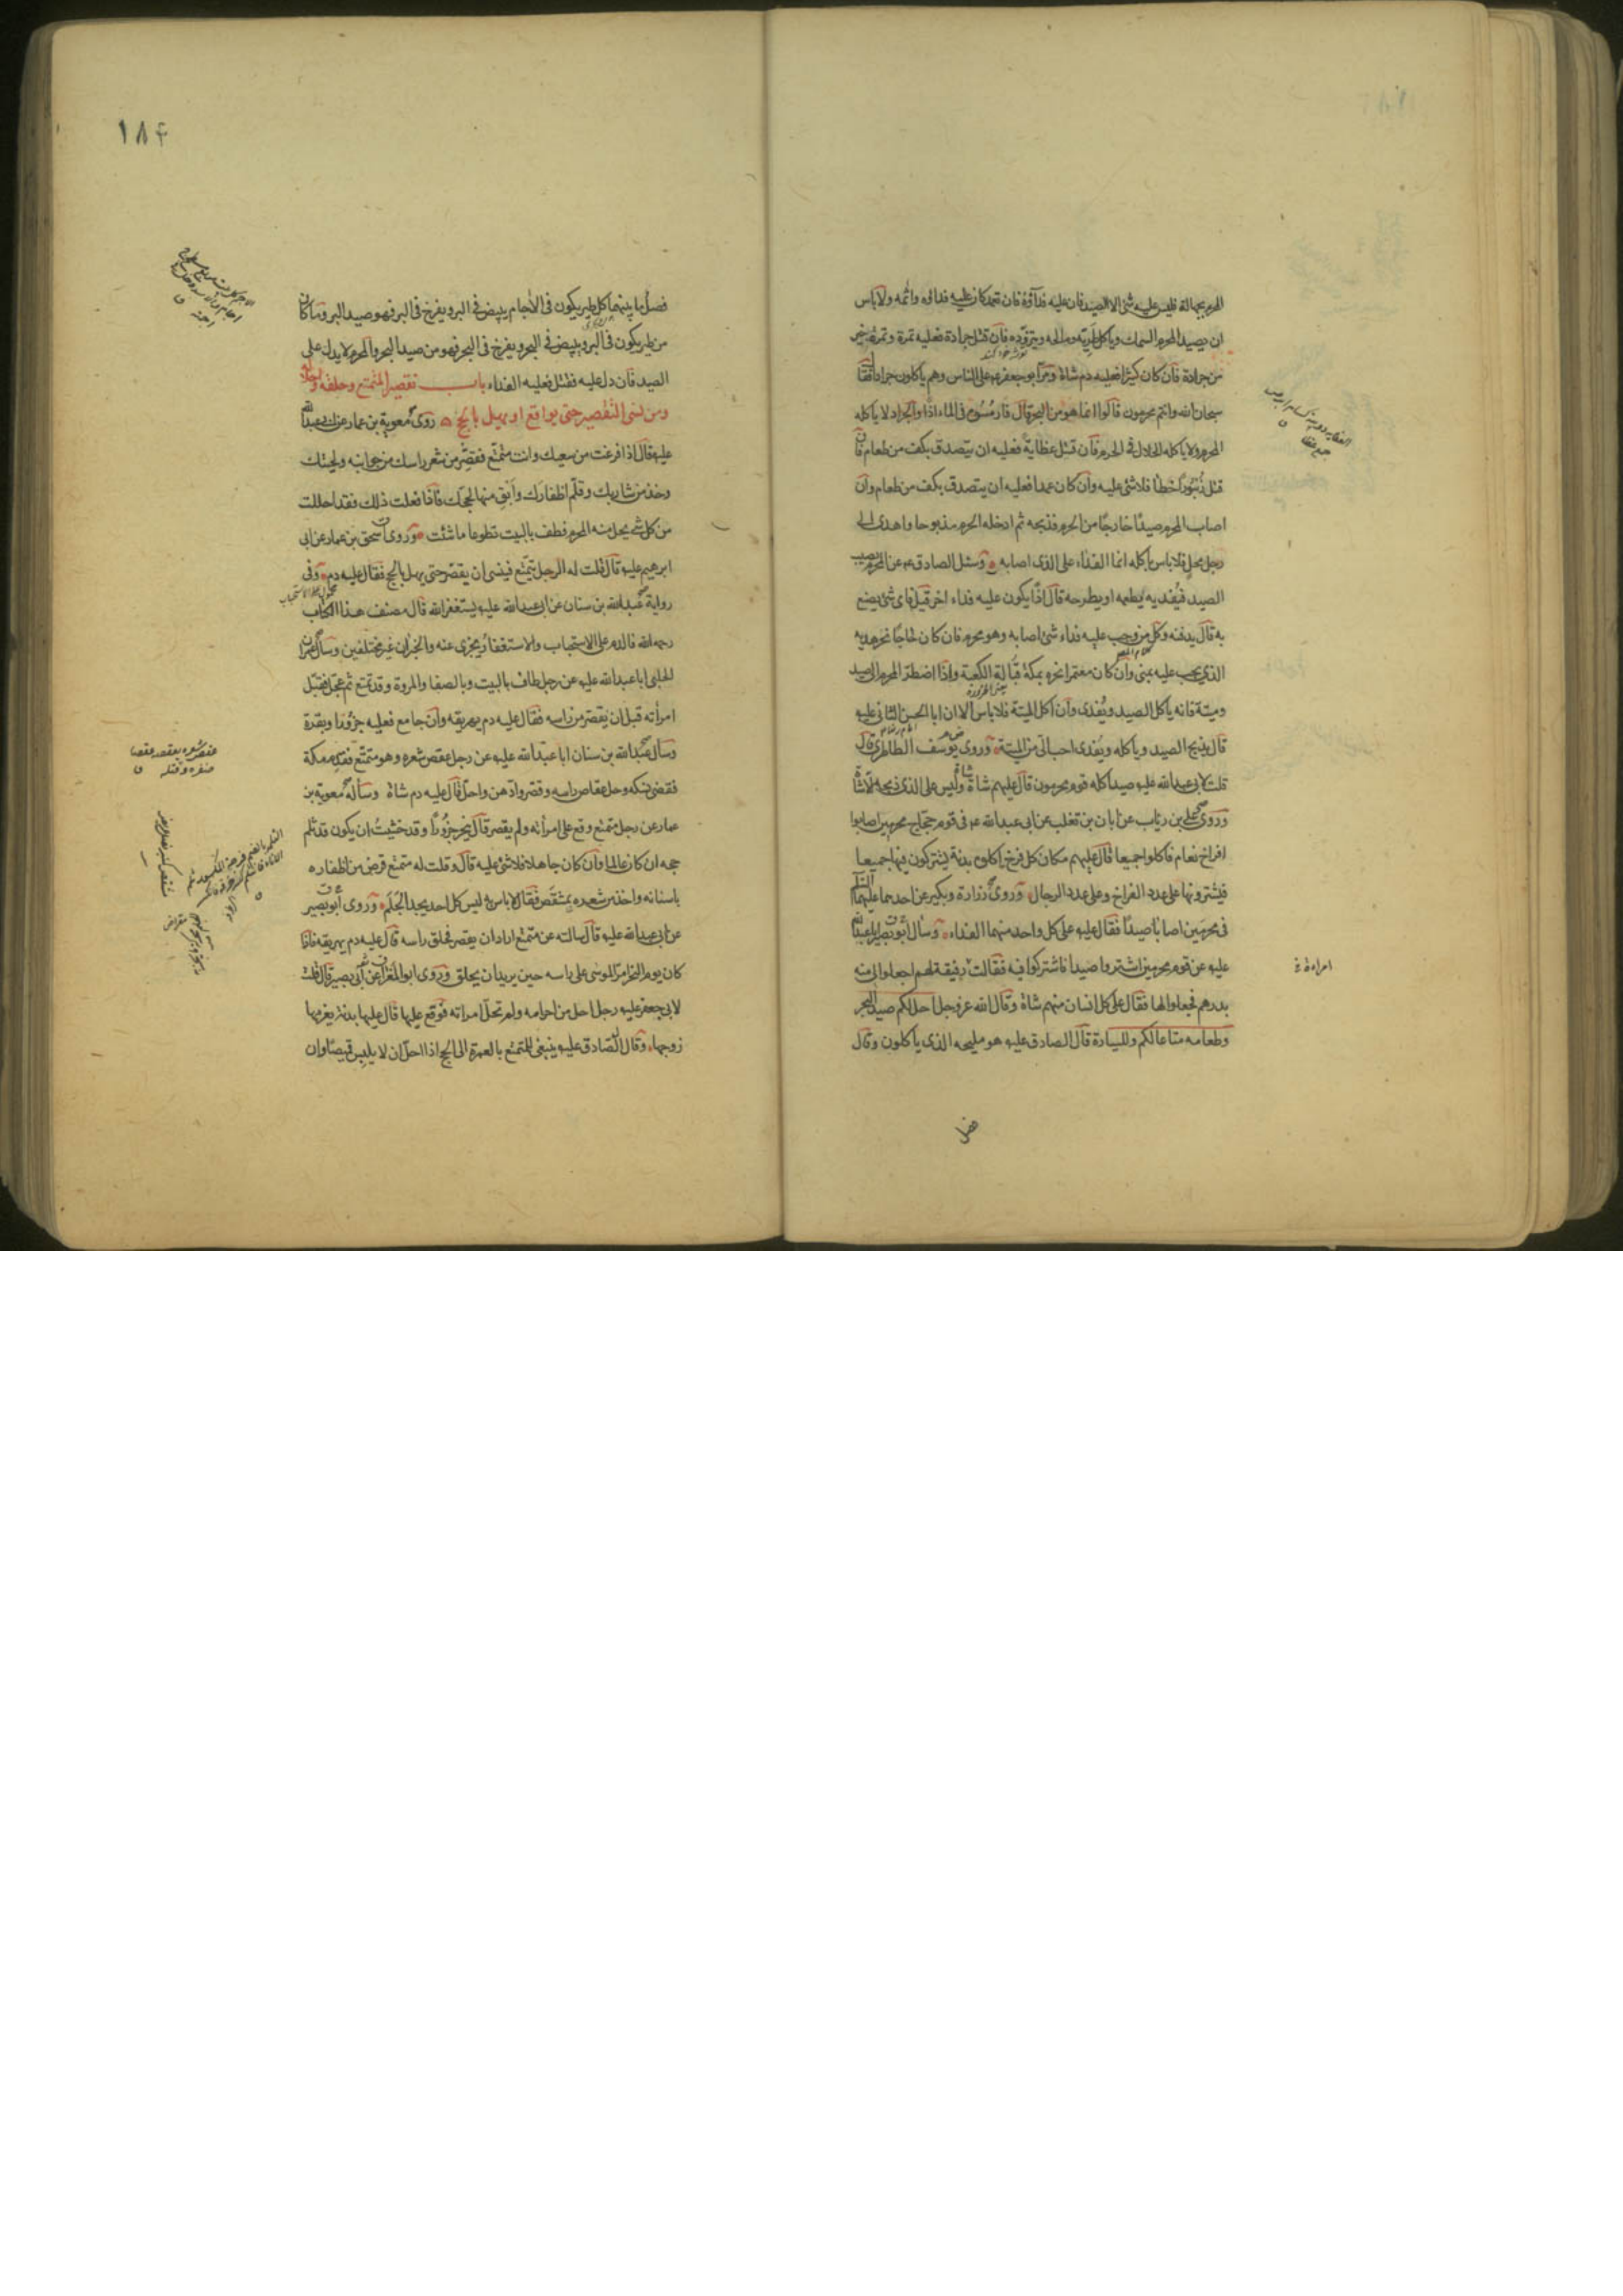 المحرم بجهالة فليس عليه شئ الا الصيد فان عليه فداؤه فان تعمد كان عليه فداؤه واثمه ولا باس
ان يصيد المحرم السمك وياكل طريه ومالحه ويتزوده فان قتل جرادة فعليه تمرة وتمرة خير
من جرادة فان كان كثيرا فعليه دم شاة ومر ابو جعفر ع على الناس وهم ياكلون جرادا فقال
سبحان الله وانتم محرمون قالوا انما هو من البحر قال فارمسوه فى الماء اذا والجراد لا ياكله
المحرم ولا ياكله الحلال فى الحرم فان قتل عظاية فعليه ان يتصدق بكف من طعام فان
قتل زنبورا خطأ فلا شئ عليه وان كان عمدا فعليه ان يتصدق بكف من طعام وان
اصاب المحرم صيدا خارجا من الحرم فذبحه ثم ادخله الحرم مذبوحا واهدى الى
رجل محل فلا باس باكله انما الفداء على الذى اصابه وسئل الصادق ع عن المحرم يصيب
الصيد فيفديه يطعمه او يطرحه قال اذا يكون عليه فداء اخر قيل فاى شئ يصنع
به قال يدفنه وكل من وجب عليه فداء شئ اصابه وهو محرم فان كان حاجا نحر هديه
الذى يجب عليه بمنى وان كان معتمرا نحره بمكة قبالة الكعبة واذا اضطر المحرم الى صيد
وميتة فانه ياكل الصيد ويفدى وان اكل الميتة فلا باس الا ان ابا الحسن الثانى عليه
قال يذبح الصيد وياكله ويفدى احب الى من الميتة وروى يوسف الطاطرى قال
قلت لابى عبدالله عليه صيد اكله قوم محرمون قال عليهم شاة شاة وليس على الذى ذبحه الا شاة
وروى على بن رئاب عن ابان بن تغلب عن ابى عبدالله ع فى قوم حجاج محرمين اصابوا
افراخ نعام فاكلوا جميعا قال عليهم مكان كل فرخ اكلوه بدنة يشتركون فيها جميعا
فيشترونها على عدد الفراخ وعلى عدد الرجال وروى زرارة وبكير عن احدهما عليهما السلم
فى محرمين اصابا صيدا فقال عليه على كل واحد منهما الفداء وسأل ابو بصير ابا عبدالله
عليه عن قوم محرمين اشتروا صيدا فاشتركوا فيه فقالت رفيقة لهم اجعلوا لى فيه
بدرهم فجعلوا لها فقال على كل انسان منهم شاة وقال الله عز وجل احل لكم صيد البحر
وطعامه متاعا لكم وللسيارة قال الصادق عليه هو مليحه الذى ياكلون وقال
فصل
امراة خ
١٨۴
فصل ما بينهما كل طير يكون فى الاجام يبيض فى البر ويفرخ فى البر فهو صيد البر وما كان
من طير يكون فى البر ويبيض فى البحر ويفرخ فى البحر فهو من صيد البحر والمحرم لا يدل على
الصيد فان دل عليه فقتل فعليه الفداء باب تقصير المتمتع وحلقه واحلاله
ومن نسى التقصير حتى يواقع او يهل بالحج روى معوية بن عمار عن ابى عبدالله
عليه قال اذا فرغت من سعيك وانت متمتع فقصر من شعر راسك من جوانبه ولحيتك
وخذ من شاربك وقلم اظفارك وابق منها لحجك فاذا فعلت ذلك فقد احللت
من كل شئ يحل منه المحرم فطف بالبيت تطوعا ما شئت وروى اسحق بن عمار عن ابى
ابرهيم عليه قال قلت له الرجل يتمتع فينسى ان يقصر حتى يهل بالحج فقال عليه دم وفى
رواية عبدالله بن سنان عن ابى عبدالله عليه يستغفر الله قال مصنف هذا الكتاب
رحمه الله فالدم على الاستحباب والاستغفار يجزى عنه والخبران غير مختلفين وسأل عمران
الحلبى ابا عبدالله عليه عن رجل طاف بالبيت وبالصفا والمروة وقد تمتع ثم عجل فقبل
امرأته قبل ان يقصر من راسه فقال عليه دم يهريقه وان جامع فعليه جزور او بقرة
وسأل عبدالله بن سنان ابا عبدالله عليه عن رجل عقص شعره وهو متمتع فقدم مكة
فقضى نسكه وحل عقاص راسه وقصر وادهن واحل قال عليه دم شاة وسأله معوية بن
عمار عن رجل متمتع وقع على امرأته ولم يقصر قال ينحر جزورا وقد خشيت ان يكون قد ثلم
حجه ان كان عالما وان كان جاهلا فلا شئ عليه قال وقلت له متمتع قرض من اظفاره
باسنانه واخذ من شعره بمشقص فقال لا باس به ليس كل احد يجد الجلم وروى ابو بصير
عن ابى عبدالله عليه قال سالته عن متمتع اراد ان يقصر فحلق راسه قال عليه دم يهريقه فاذا
كان يوم النحر امر الموسى على راسه حين يريد ان يحلق وروى ابو المغرا عن ابى بصير قال قلت
لابى جعفر عليه رجل احل من احرامه ولم تحل امراته فوقع عليها قال عليها بدنة يغرمها
زوجها وقال الصادق عليه ينبغى للمتمتع بالعمرة الى الحج اذا احل ان لا يلبس قميصا وان
عقص شعره يعقصه عقصا
ضفره وفتله ق